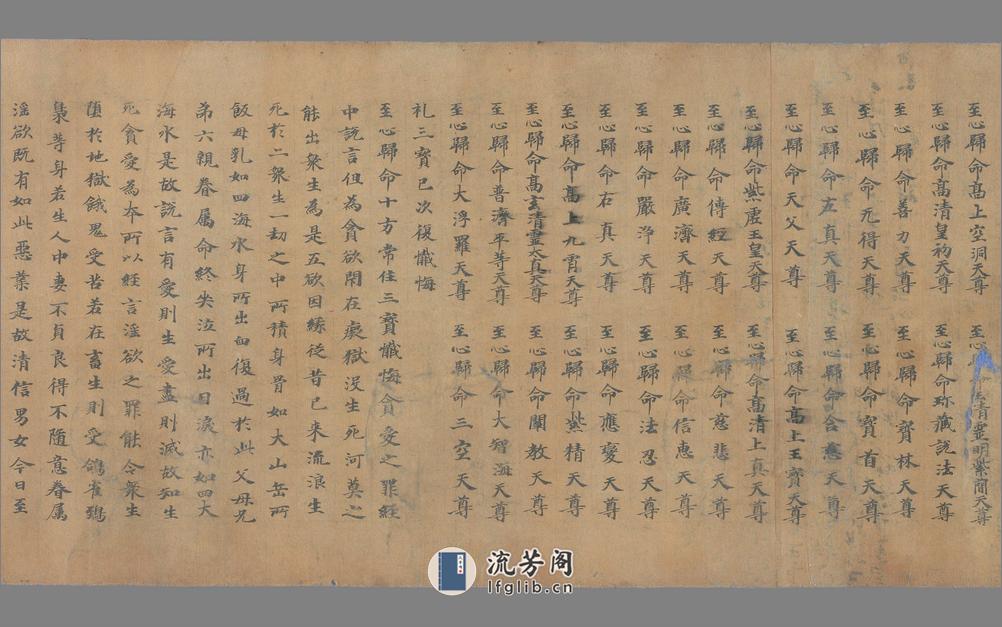 至心歸命高上空洞天尊 至心 清靈明紫闇天尊
至心歸命高清皇初天尊 至心歸命珎藏說法天尊
至心歸命善力天尊 至心歸命寳林天尊
至心歸命元得天尊 至心歸命寳首天尊
至心歸命左真天尊 至心歸命含慈天尊
至心歸命天父天尊 至心歸命高上王寳天尊
至心歸命紫虛王皇天尊 至心歸命高清上真天尊
至心歸命傳經天尊 至心歸命慈悲天尊
至心歸命廣濟天尊 至心歸命信惠天尊
至心歸命嚴淨天尊 至心歸命法忍天尊
至心歸命右真天尊 至心歸命應變天尊
至心歸命高上九霄天尊 至心歸命紫精天尊
至心歸命高玄清靈太真天尊 至心歸命闡教天尊
至心歸命普濟平等天尊 至心歸命大智海天尊
至心歸命大浮羅天尊 至心歸命三空天尊
礼三寳已次復懺悔
至心歸命十方常住三寳懺悔貪愛之罪經
中說言但為貪欲閇在癡獄沒生死河莫之
能出衆生為是五欲因緣從昔已来流浪生
死於二衆生一劫之中所積身骨如大山岳所
飲母乳如四海水身所出血復過於此父母兄
弟六親眷屬命終哭泣所出目淚亦如四大
海水是故說言有愛則生愛盡則滅故知生
死貪愛為本所以經言淫欲之罪能令衆生
墮於地獄餓鬼受苦若在畜生則受鴿雀鵄
梟等身若生人中妻不貞良得不隨意眷属
淫欲既有如此惡業是故清信男女今日至
流芳阁
lfglib.cn